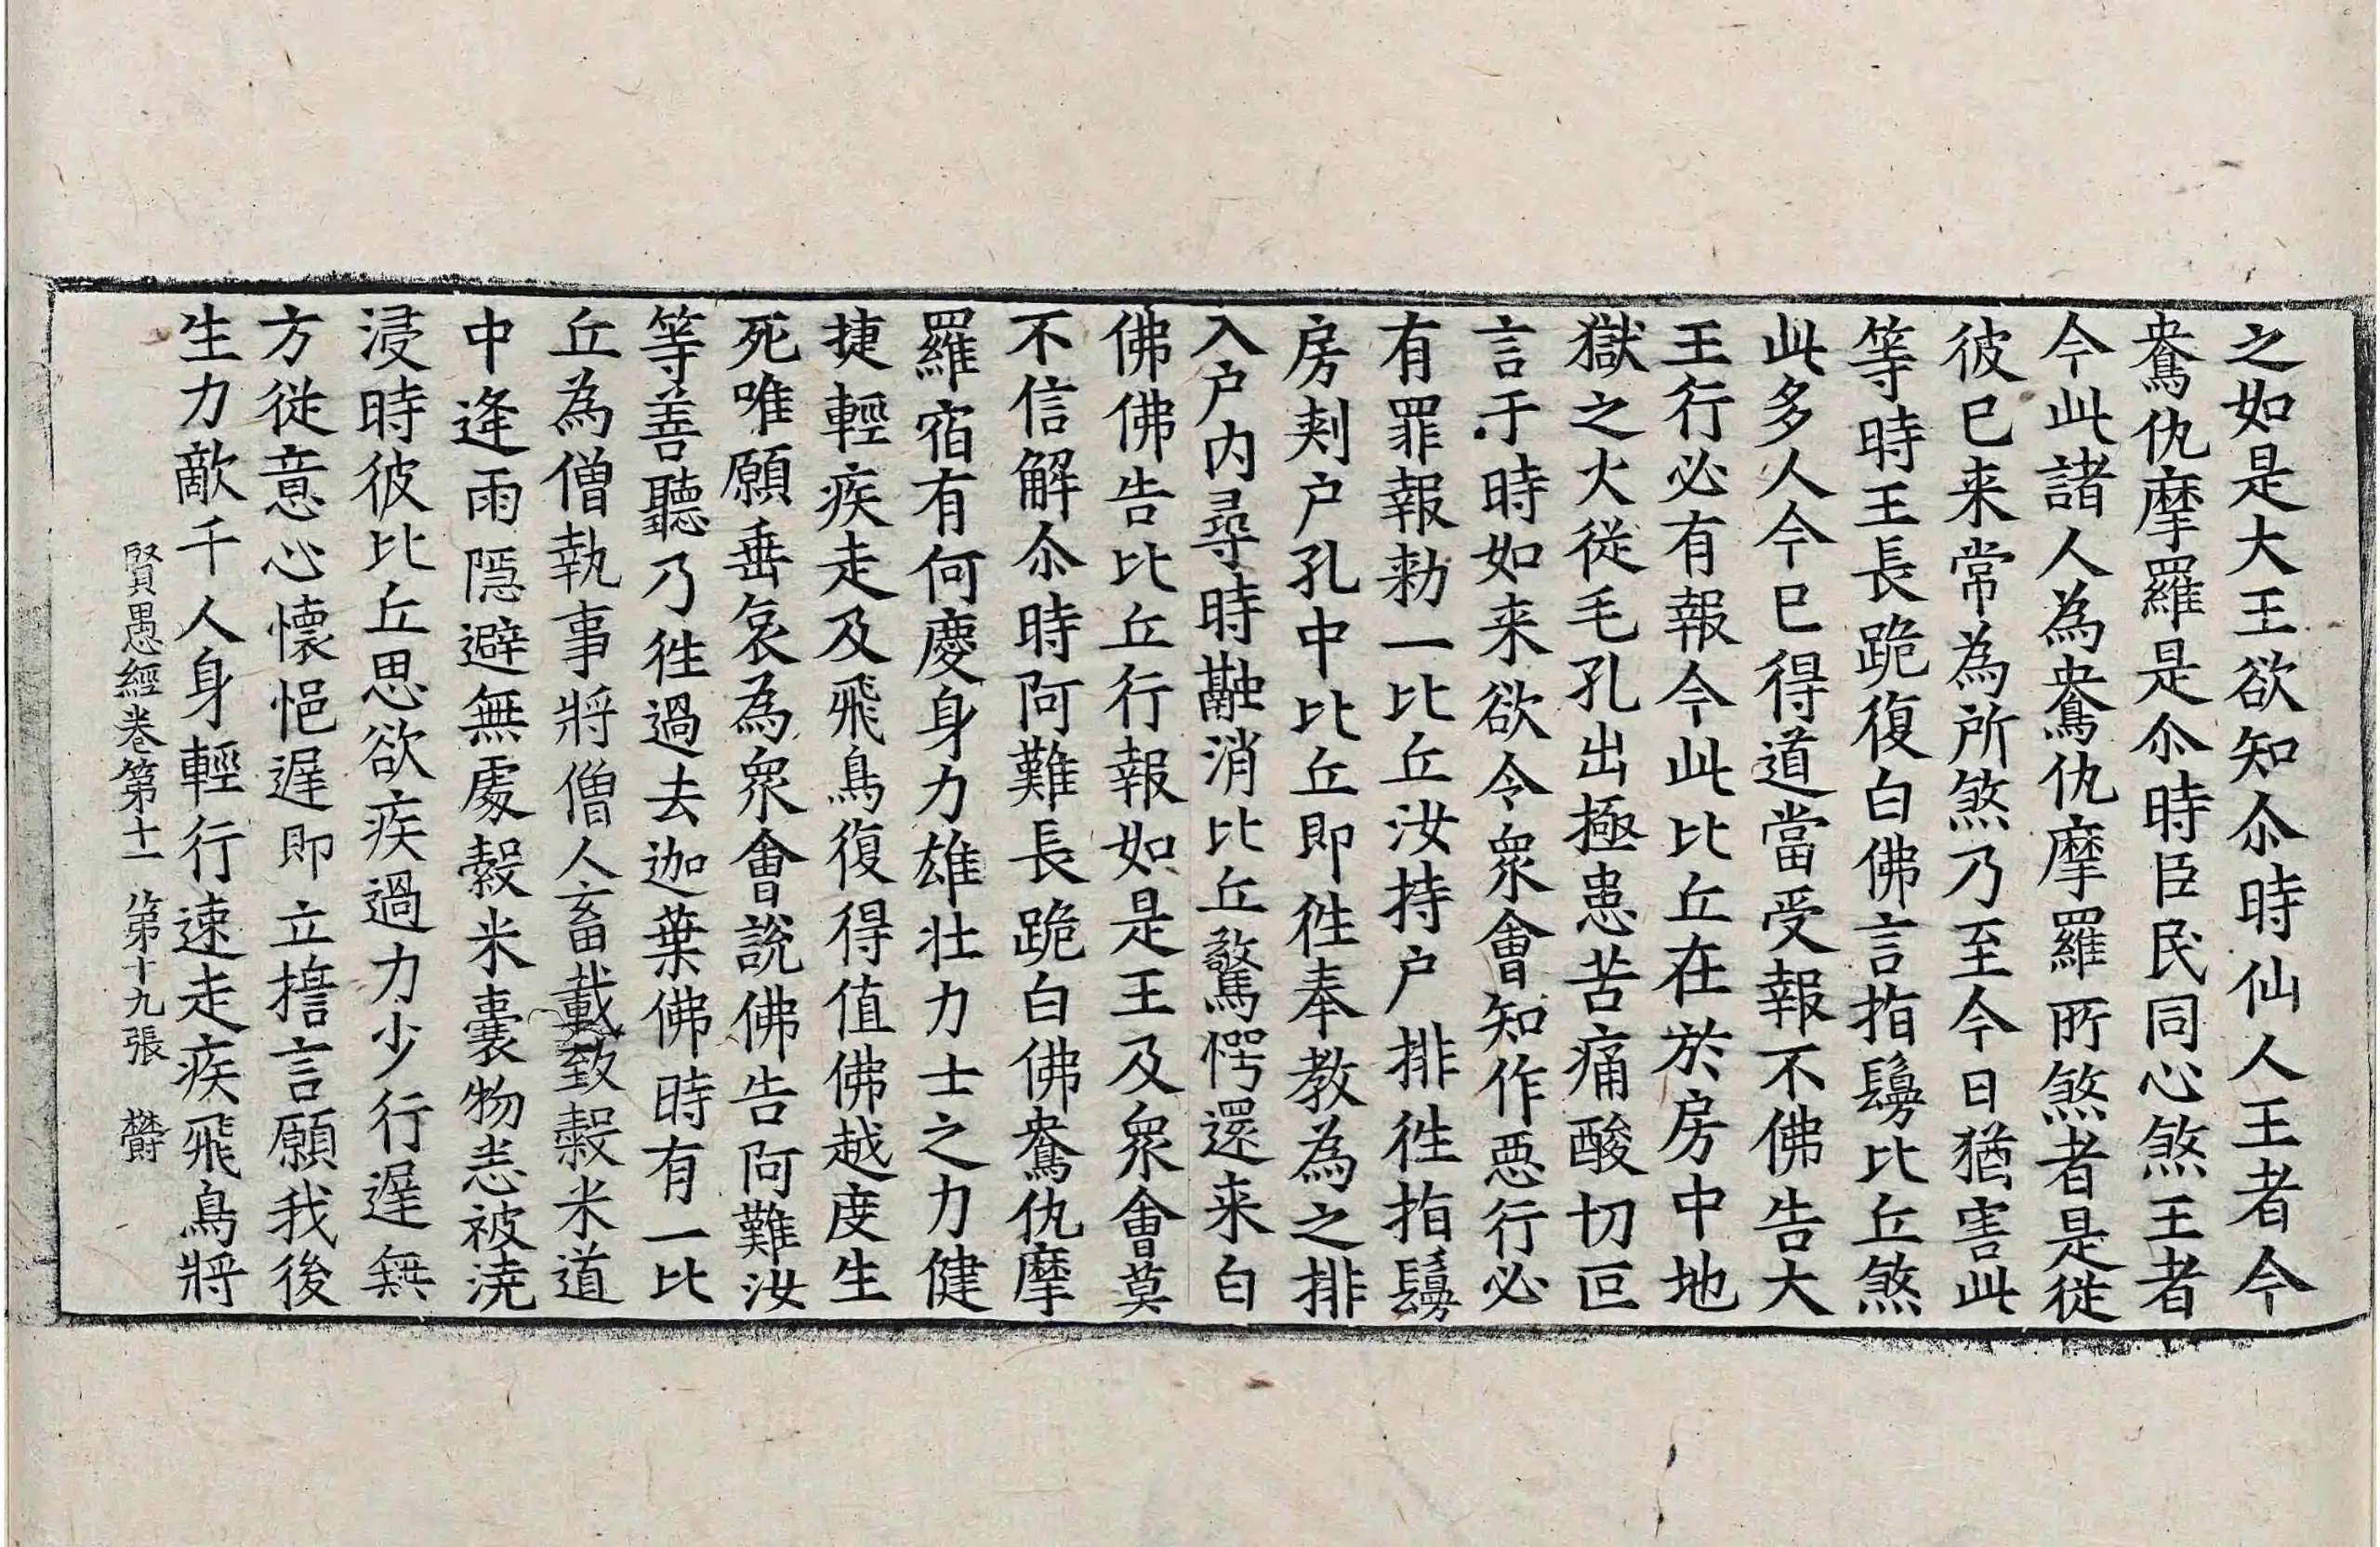 之如是大王欲知尒時仙人王者今
鴦仇摩羅是尒時臣民同心煞王者
今此諸人為鴦仇摩羅所煞者是從
彼已来常為所煞乃至今日猶害此
等時王長跪復白佛言指鬘比丘煞
此多人今已得道當受報不佛告大
王行必有報今此比丘在於房中地
獄之火從毛孔出極患苦痛酸切叵
言于時如来欲令衆會知作惡行必
有罪報勑一比丘汝持户排徃指鬘
房刾户孔中比丘即徃奉教為之排
入户内尋時融消比丘驚愕還来白
佛佛告比丘行報如是王及衆會莫
不信解尒時阿難長跪白佛鴦仇摩
羅宿有何慶身力雄壮力士之力健
捷輕疾走及飛鳥復得值佛越度生
死唯願垂哀為衆會說佛告阿難汝
等善聽乃徃過去迦葉佛時有一比
丘為僧執事將僧人畜載致穀米道
中逢雨隱避無處穀米囊物悉被澆
浸時彼比丘思欲疾過力少行遅無
方從意心懷悒遅即立擔言願我後
生力敵千人身輕行速走疾飛鳥將
賢愚經卷第十一 第十九張 欝